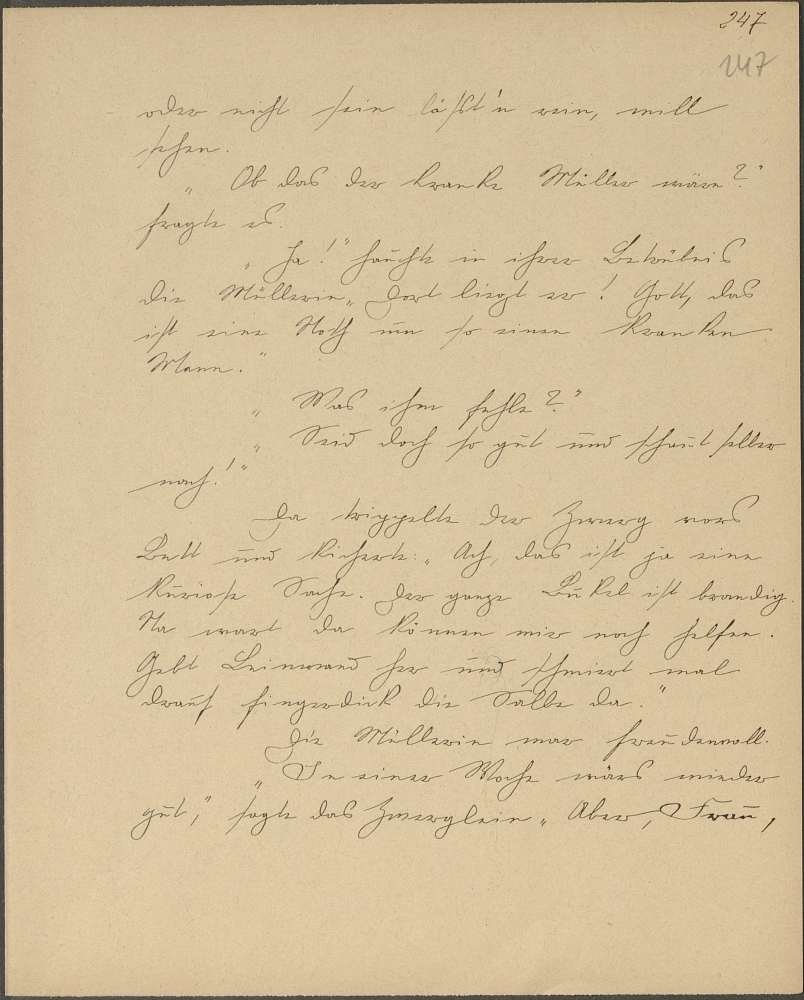 247
247
oder nicht sein läßt'n rein, will
sehen.
„Ob das der kranke Müller wäre?"
fragte es.
„Ja!" hauchte in ihrer Betrübnis
die Müllerin, „Dort liegt er! Gott, das
ist eine Noth um so einen kranken
Mann."
„Was ihm fehle?"
„Seid doch so gut und schaut selber
nach!"
Da trippelte der Zwerg vors
Bett und kicherte: „Ach, das ist ja eine
kuriose Sache. Der ganze Bukel ist brandig.
Na wart da können wir noch helfen.
Gebt Leinwand her und schmiert mal
drauf fingerdick die Salbe da."
Die Müllerin war freudenvoll.
„In einer Woche wärs wieder
gut," sagte das Zwerglein „Aber, Frau,